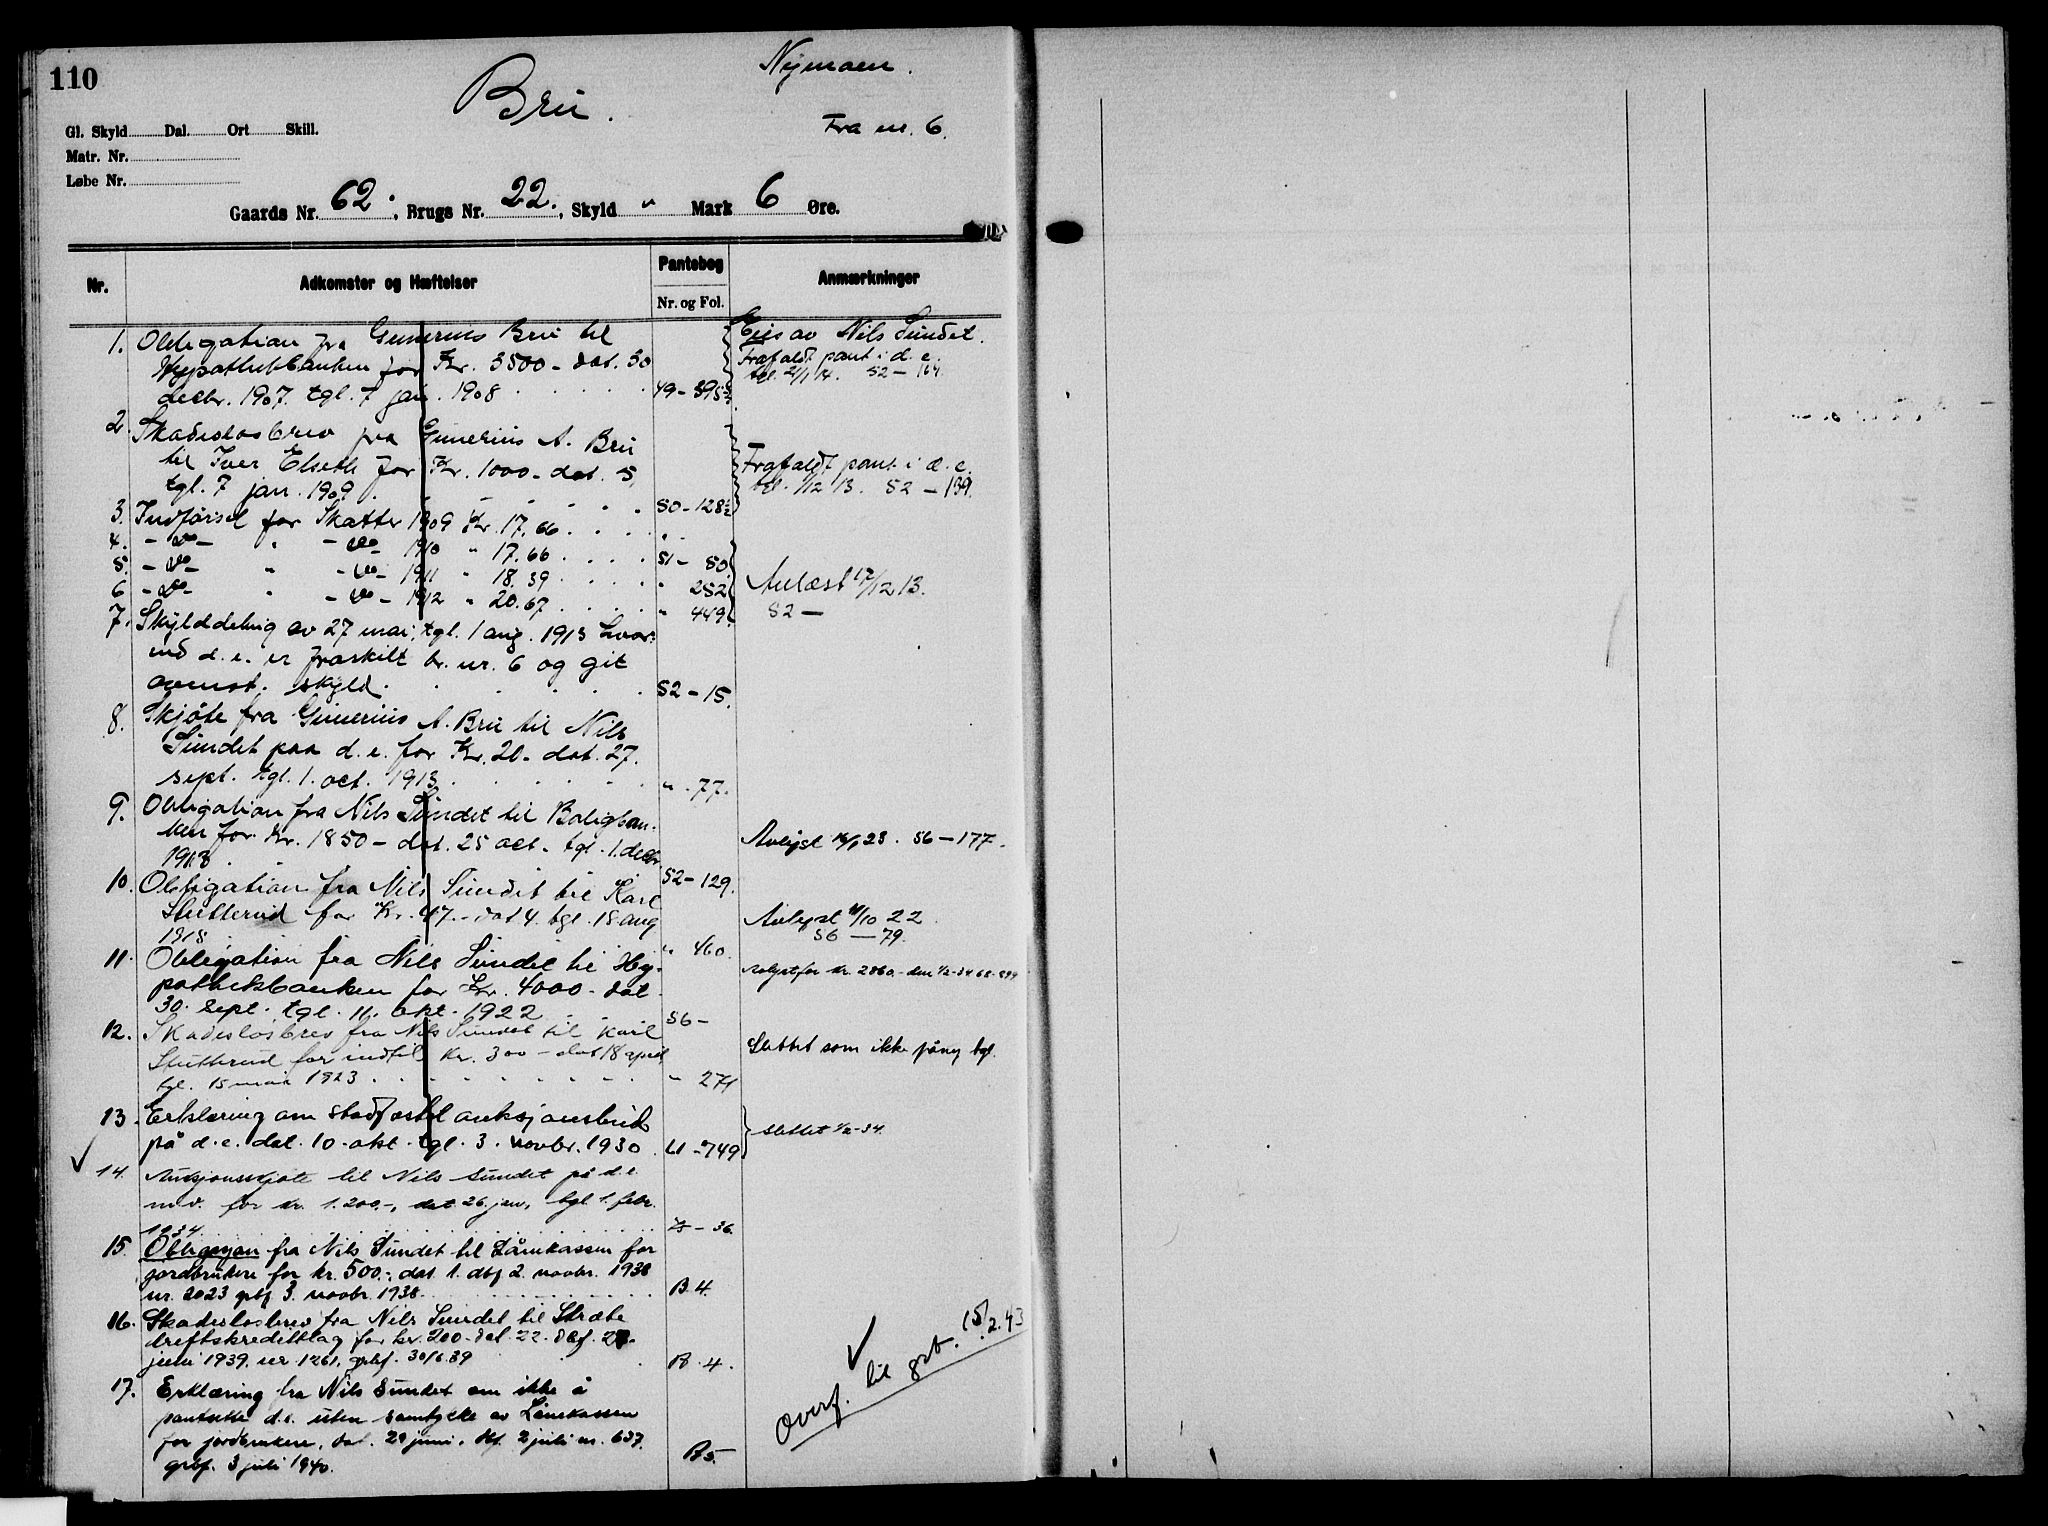 110
Nymoen.
Bru.
Fra nr. 6.
Gl. Skyld Dal. Ort Skill.
Matr. Nr.
Løbe Nr.
Gaards Nr. 62. , Brugs Nr. 22. , Skyld " Mark 6 Øre.
Nr. Adkomster og Hæftelser Pantebog Nr. og Fol. Anmærkninger
1. Obligation fra Gunerius Bru til
Hypothekbanken for Kr. 3500 - dat. 30
decbr. 1907. tgl. 7 jan. 1908 49 - 395
Eies av Nils Sundet.
Frafaldt pant i d. e.
tgl. 2/1 14. 52 - 164
2. Skadesløsbrev fra Gunerius A. Bru
til Iver Elseth for Kr. 1000 - dat. 5,
tgl. 7 jan. 1909. 50 - 128
Frafaldt pant i d. e.
tgl. 1/12 13. 52 - 139.
3. Indførsel for Skatter 1909 Kr. 17.66 "
4. - do - " - do - 1910 " 17.66 51 - 50
5. - do - " - do - 1911 " 18.39 " 252
6 - do - " - do - 1912 " 20.67 " 449
Avlæst 17/12 13.
52 -
7. Skylddeling av 27 mai, tgl. 1 aug. 1913 hvor-
ved d. e. er fraskilt br. nr. 6 og git
ovennt. skyld. 52 - 15.
8. Skjøte fra Gunerius A. Bru til Nils
Sundet paa d. e. for Kr. 20 - dat. 27.
sept. tgl. 1. oct. 1913. " - 77.
9. Obligation fra Nils Sundet til Boligban-
ken for Kr. 1850 - dat. 25 oct. tgl. 1. decbr.
1913. 52 - 129.
Avlyst 16/1 23. 56 - 177.
10. Obligation fra Nils Sundet til Karl
Slutterud for Kr. 47. - dat 4. tgl. 18 aug
1918. " 460.
Avlyst 11/10 22
56 - 79.
11. Obligation fra Nils Sundet til Hy-
pothekbanken for Kr. 4000 - dat
30. sept. tgl. 11. okt. 1922 56 -
Avlyst for kr. 2860 - den 1/2 - 34
12. Skadesløsbrev fra Nils Sundet til Karl
Slutterud for indtil Kr. 300 - dat 18 april
tgl. 15 mai 1923 " 271
Slettet som ikke påny tgl.
13. Erklæring om stadfæstet auksjonsbud
på d. e. dat. 10. okt. tgl. 3. novbr. 1930 61 - 749
slettet 1/2 - 34.
14. Auksjonsskjøte til Nils Sundet på d. e.
m.v. for kr. 1.200.-, dat 26. jan, tgl 1. febr.
1934 - 36.
15. Obligasjon fra Nils Sundet til Lånekassen for
jordbrukere for kr. 500.-, dat. 1. dbf 2. novbr. 1938
nr. 2023 gbf 3. novbr. 1938. B. 4.
16. Skadesløsbrev fra Nils Sundet til
driftskredittlag for kr. 200 - dat. 22. dbf.
juni 1939, nr. 1261, gbf. 30/6. 39 B. 4.
17. Erklæring fra Nils Sundet om ikke å
pantsette d. e. uten samtykke av Lånekassen
for jordbrukere, dat. 29 juni, dbf. 2 juli nr. 637.
gbf. 3 juli 1940. B 5.
overf. til grb. 15/2.43